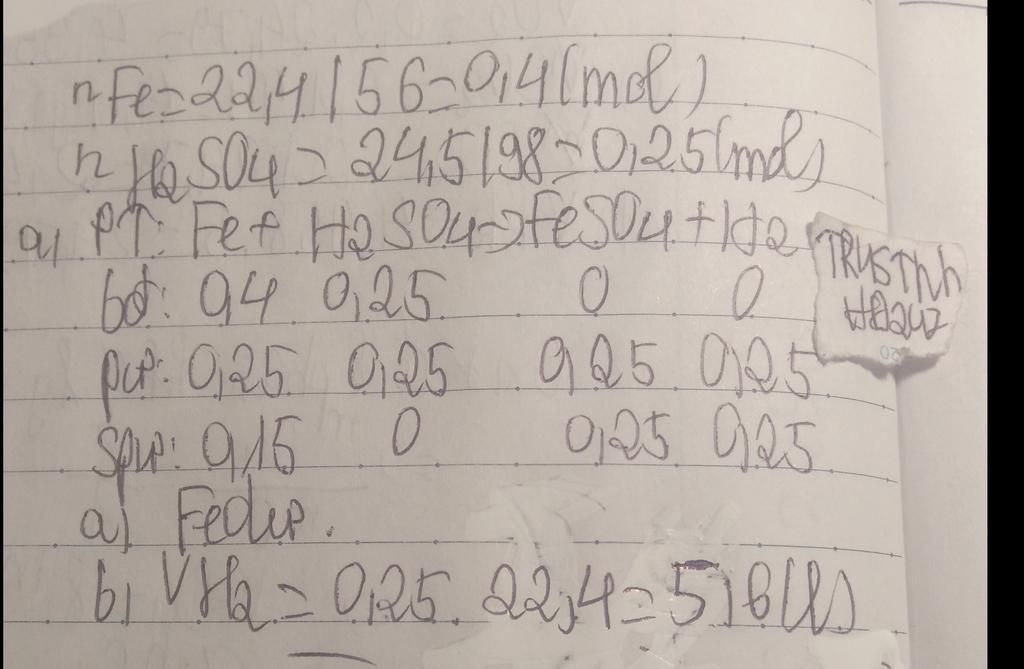 nFe=22,4/56=0,4(mol)
nH2SO4=24,5/98=0,25(mol)
a, PT: Fe+ H2SO4->FeSO4+H2
bđ: 0,4 0,25 0 0
pư: 0,25 0,25 0,25 0,25
spư: 0,15 0 0,25 0,25
a) Fe dư.
b, VH2=0,25. 22,4=5,6(l)
TRUSTNh